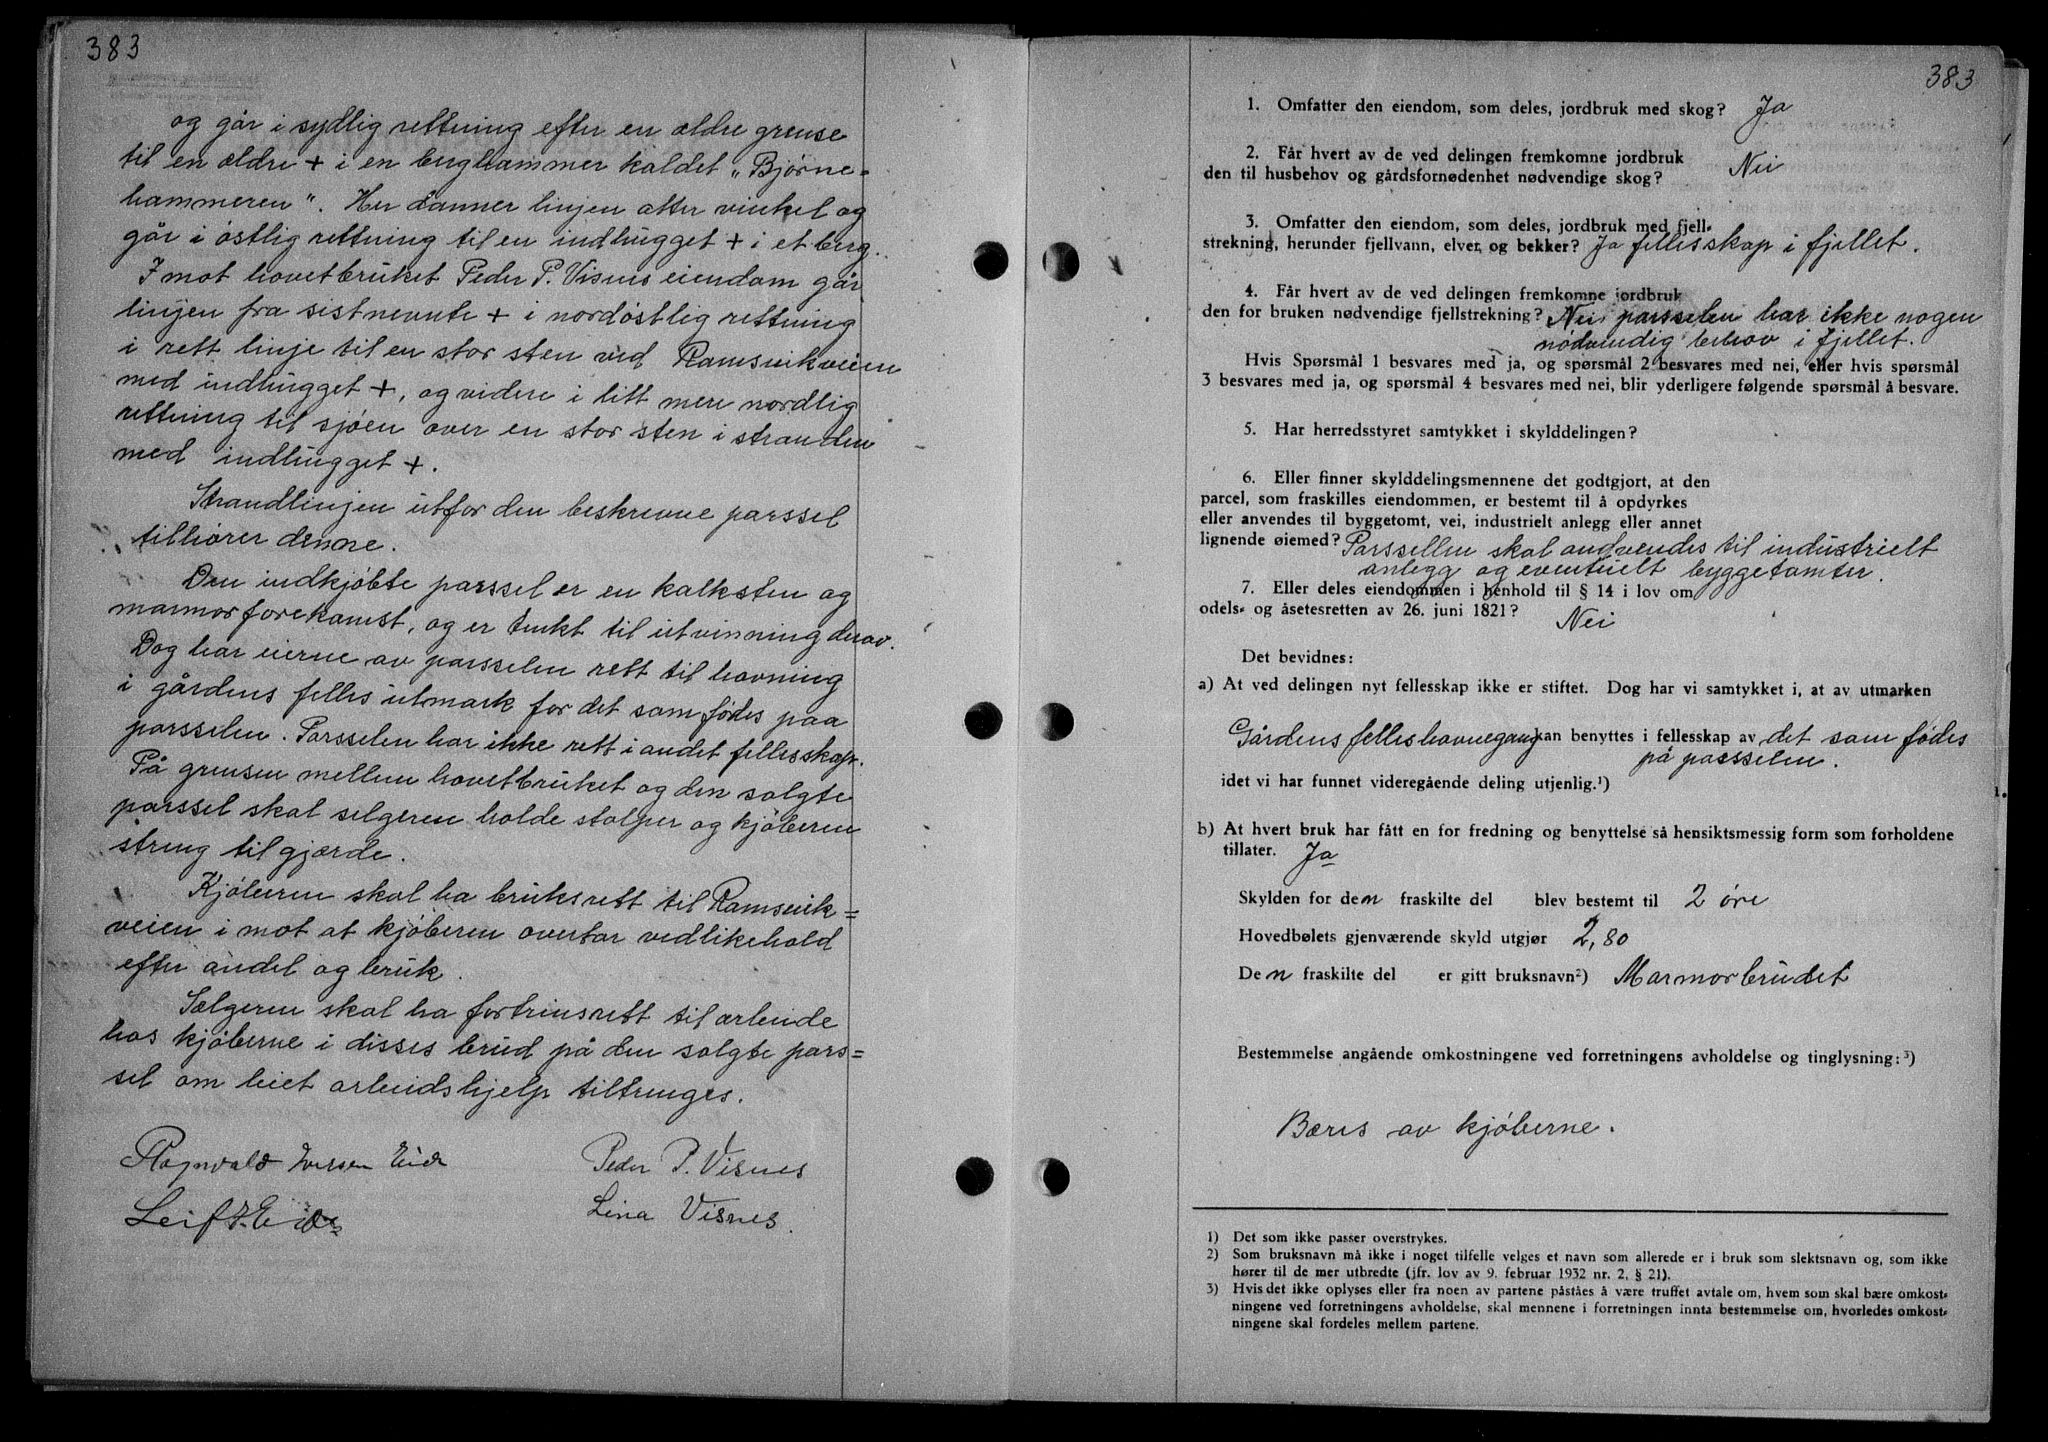 383
og går i sydlig rettning efter en ældre grense
til en ældre + i en berghammer kaldet „Bjørne=
hammeren". Her danner linjen atter vinkel og
går i østlig rettning til en indhugget + i et berg.
I mot hovetbruket Peder P. Visnes eiendom går
linjen fra sistnevnte + i nordøstlig rettning
i rett linje til en stor sten ved Ramsvikveien
med indhugget +, og videre i litt mere nordlig
rettning til sjøen over en stor sten i stranden
med indhugget +.
Strandlinjen utfor den beskrevne parssel
tilhører denne.
Den indkjøbte parssel er en kalksten og
marmorforekomst, og er tenkt til utvinning derav.
Dog har eierne av parsselen rett til havning
i gårdens felles utmark for det som fødes paa
parsselen. Parsselen har ikke rett i andet fellesskap.
På grensen mellem hovetbruket og den solgte
parssel skal selgeren holde stolper og kjøberen
streng til gjærde.
Kjøberen skal ha bruksrett til Ramsvik=
veien i mot at kjøberen overtar vedlikehold
efter andel og bruk.
Selgeren skal ha fortrinsrett til arbeide
hos kjøberne i disses brud på den solgte pars=
sel om leiet arbeidshjelp tiltrenges.
Ragnvald Iversen Eide Peder P. Visnes
Leif I. Eide Lina Visnes.
383
1. Omfatter den eiendom, som deles, jordbruk med skog? Ja
2. Får hvert av de ved delingen fremkomne jordbruk
den til husbehov og gårdsfornødenhet nødvendige skog? Nei
3. Omfatter den eiendom, som deles, jordbruk med fjell-
strekning, herunder fjellvann, elver og bekker? Ja fellesskap i fjellet.
4. Får hvert av de ved delingen fremkomne jordbruk
den for bruken nødvendige fjellstrekning? Nei, parsselen har ikke nogen
nødvendig behov i fjellet.
Hvis Spørsmål 1 besvares med ja, og spørsmål 2 besvares med nei, eller hvis spørsmål
3 besvares med ja, og spørsmål 4 besvares med nei, blir yderligere følgende spørsmål å besvare.
5. Har herredsstyret samtykket i skylddelingen?
6. Eller finner skylddelingsmennene det godtgjort, at den
parcel, som fraskilles eiendommen, er bestemt til å opdyrkes
eller anvendes til byggetomt, vei, industrielt anlegg eller annet
lignende øiemed? Parssellen skal andvendes til industrielt
anlegg og eventuelt byggetomter.
7. Eller deles eiendommen i henhold til § 14 i lov om
odels- og åsetesretten av 26. juni 1821? Nei
Det bevidnes:
a) At ved delingen nyt fellesskap ikke er stiftet. Dog har vi samtykket i, at av utmarken
Gårdens felleshavnegang kan benyttes i fellesskap av det som fødes
på parsselen.
idet vi har funnet videregående deling utjenlig.¹)
b) At hvert bruk har fått en for fredning og benyttelse så hensiktsmessig form som forholdene
tillater. Ja
Skylden for den fraskilte del blev bestemt til 2 øre
Hovedbølets gjenværende skyld utgjør 2,80
Den fraskilte del er gitt bruksnavn²) Marmorbrudet
Bestemmelse angående omkostningene ved forretningens avholdelse og tinglysning:³)
Bæres av kjøberne.
1) Det som ikke passer overstrykes.
2) Som bruksnavn må ikke i noget tilfelle velges et navn som allerede er i bruk som slektsnavn og, som ikke
hører til de mer utbredte (jfr. lov av 9. februar 1932 nr. 2, § 21).
3) Hvis det ikke oplyses eller fra noen av partene påståes å være truffet avtale om, hvem som skal bære omkost-
ningene ved forretningens avholdelse, skal mennene i forretningen innta bestemmelse om, hvorledes omkost-
ningene skal fordeles mellem partene.